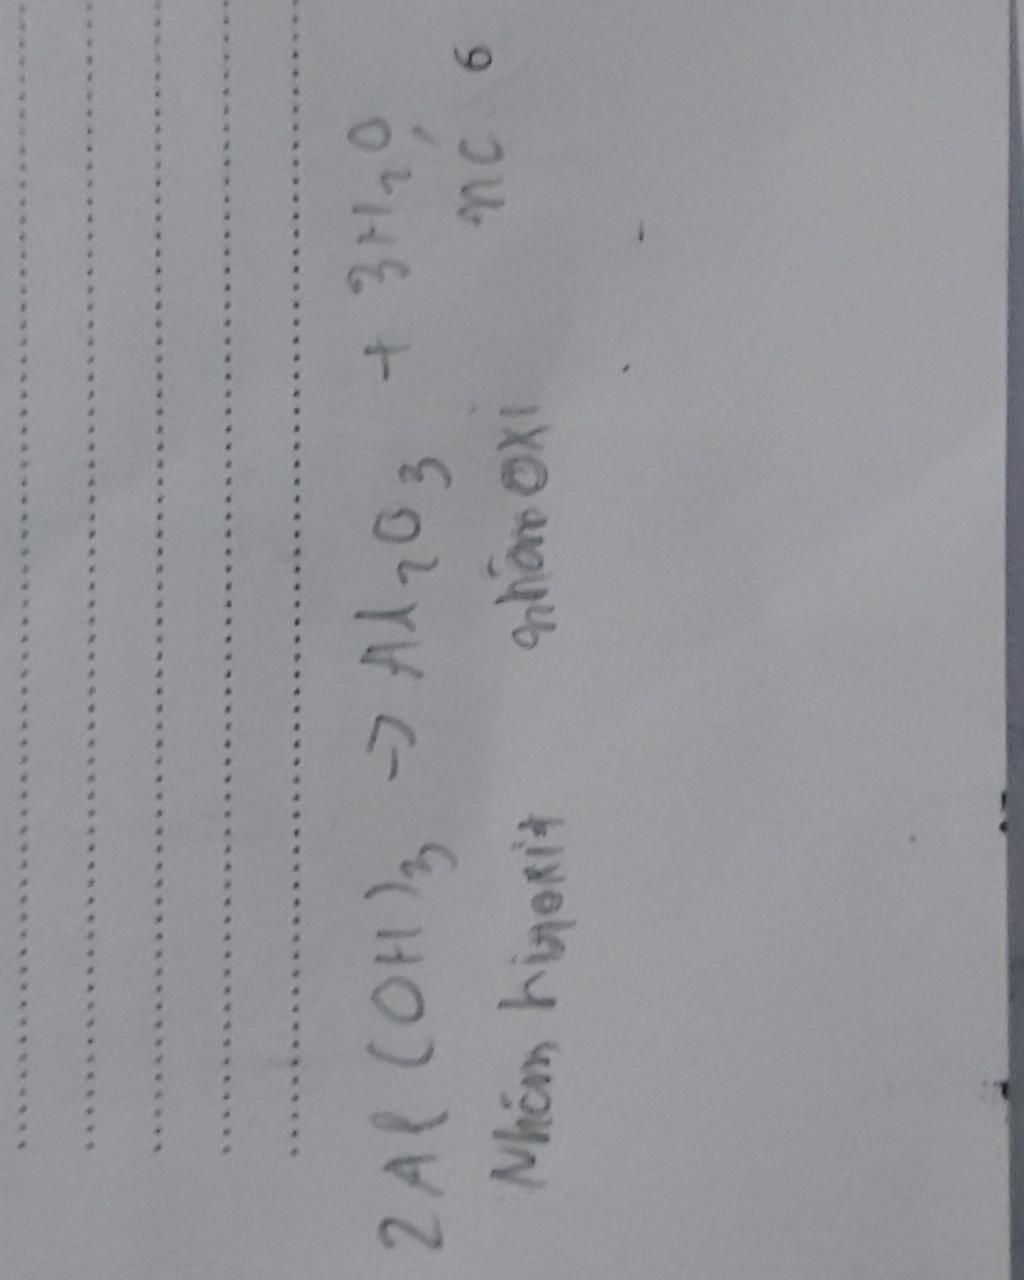 2Al(OH)3 → Al2O3 + 3H2O
Nhóm hiđroxit nhóm oxi nc 6